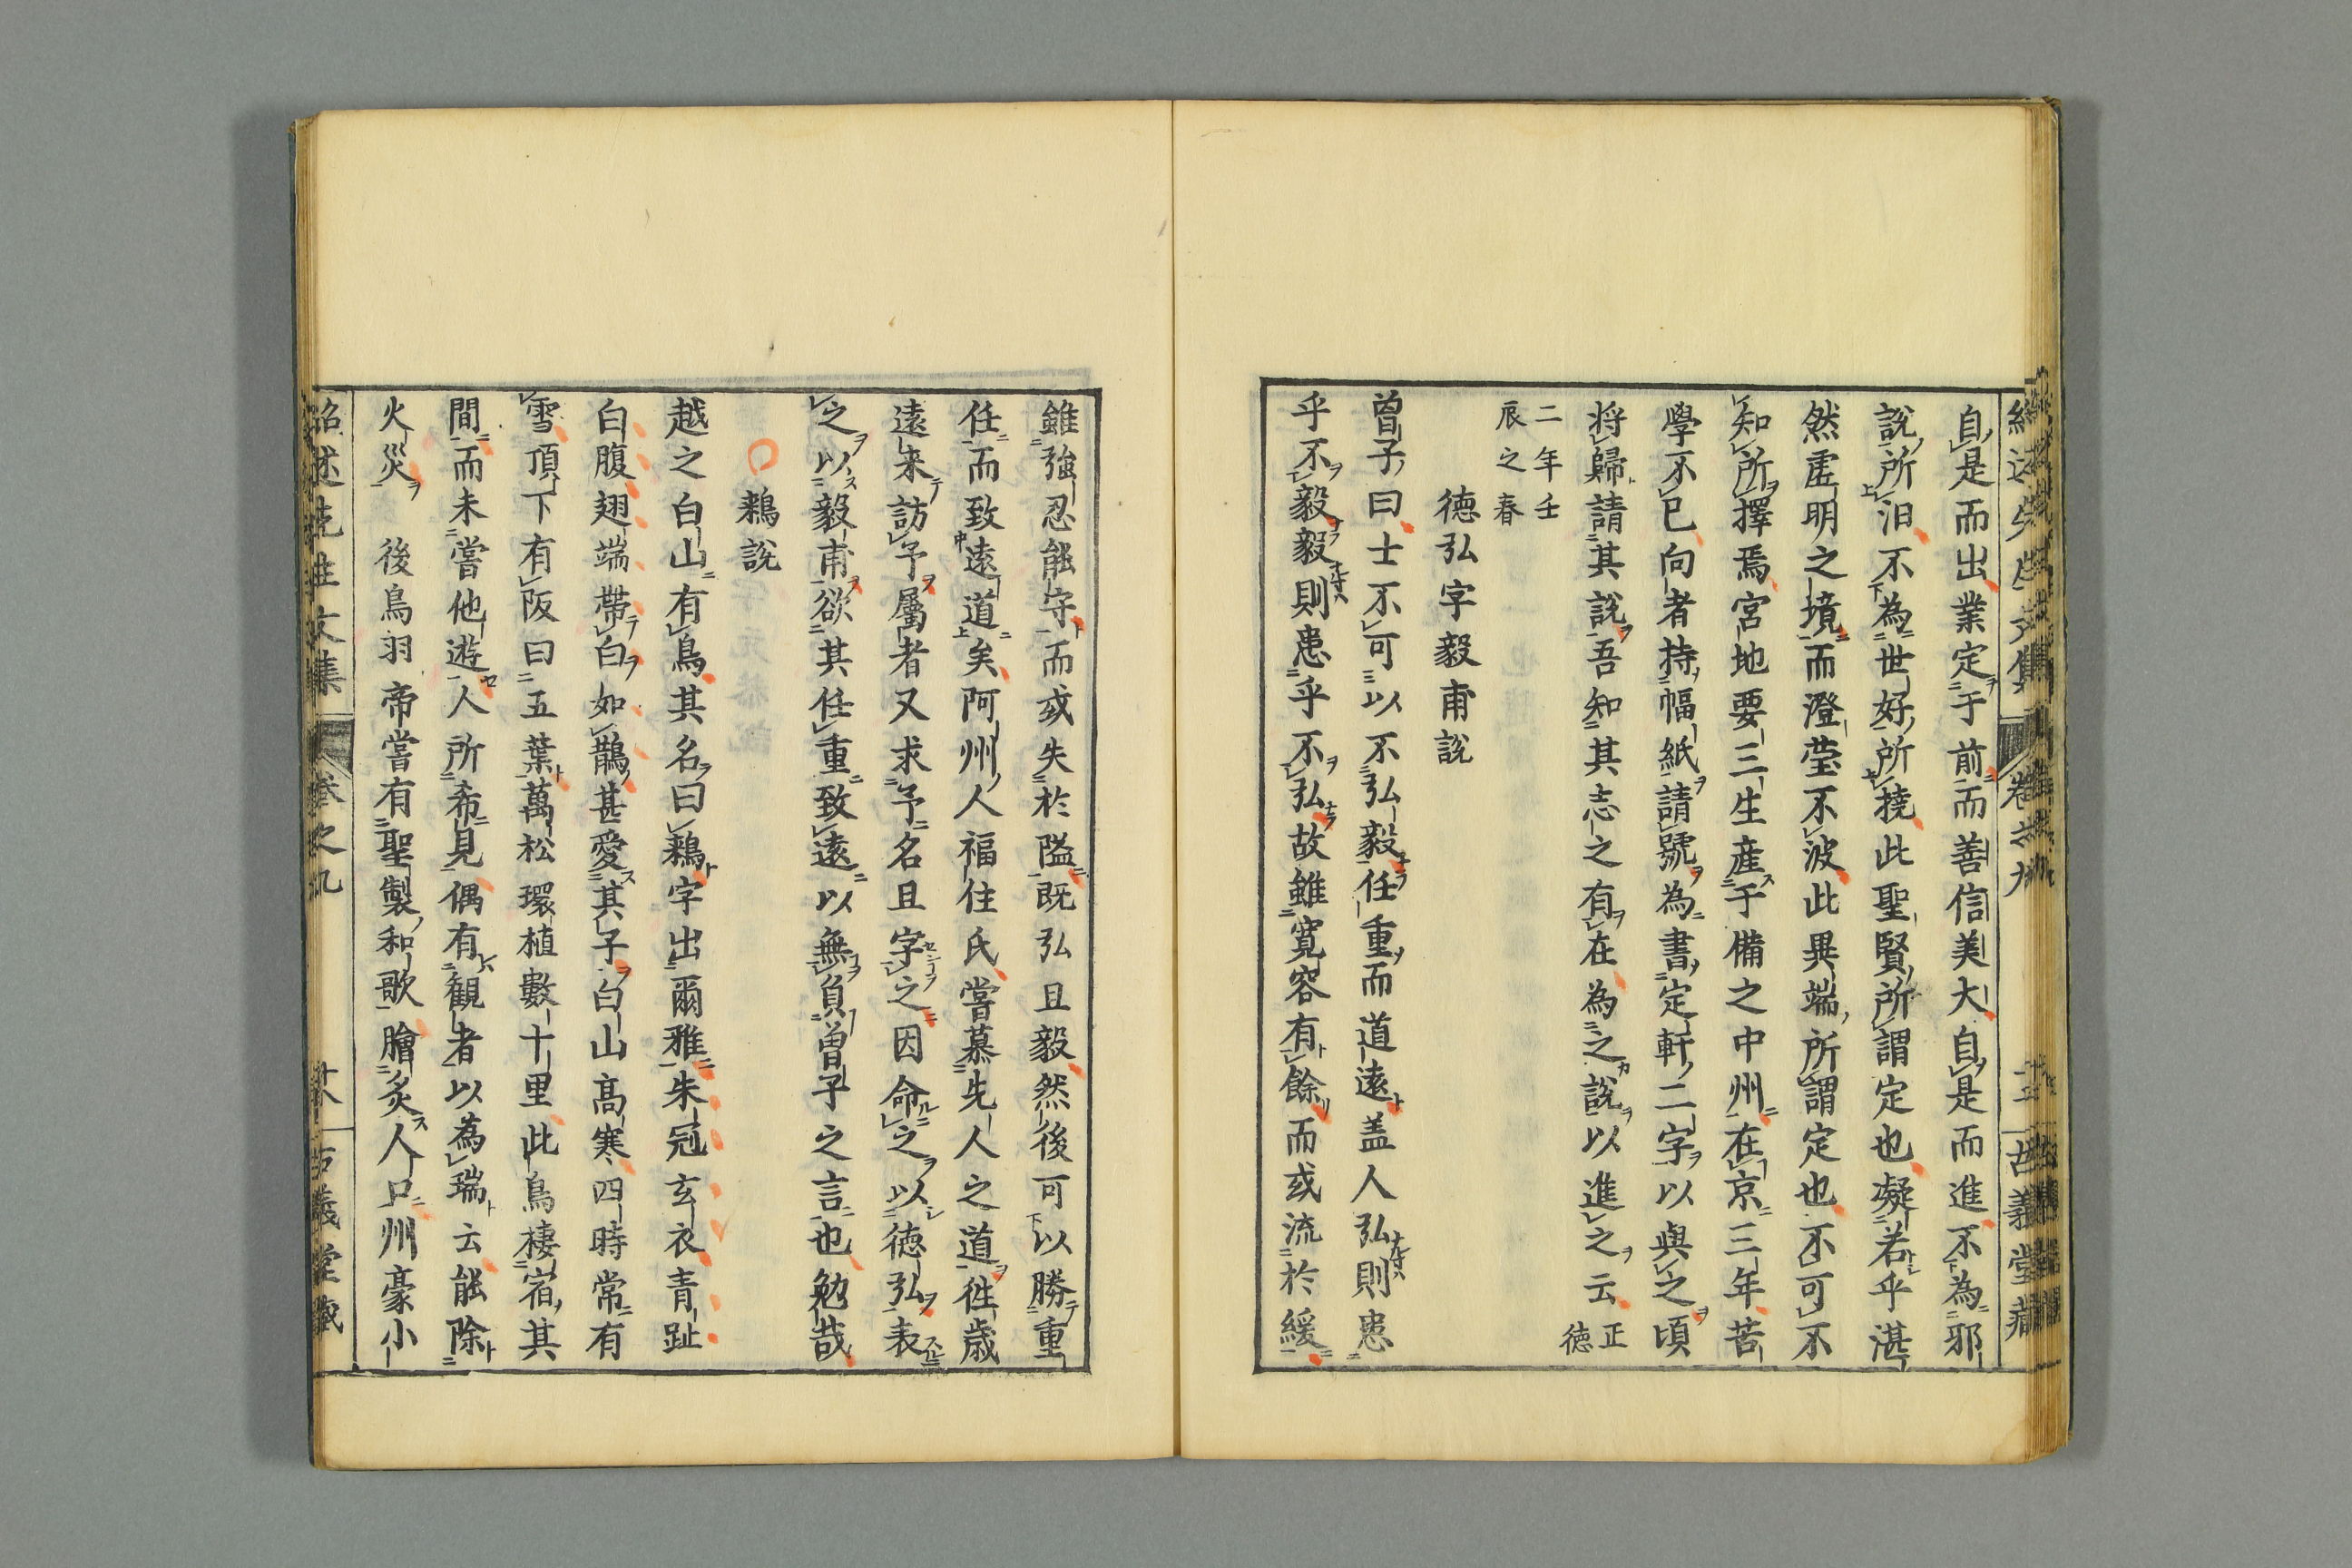 自是而出業定于前而善信美大自是而進不為邪
說所汨不為世好所撓此聖賢所謂定也凝若乎湛
然虛明之境而澄瑩不波此異端所謂定也不可不
知所擇焉宮地要三生産于備之中州在京三年苦
學不已向者持幅紙請號為書定軒二字以與之頃
将歸請其說吾知其志之有在為之說以進之云正德
二年壬辰之春
德弘字毅甫說
曾子曰士不可以不弘毅任重而道遠盖人弘則患
乎不毅毅則患乎不弘故雖寛容有餘而或流於緩
雖強忍能守而或失於隘既弘且毅然後可以勝重
任而致遠道矣阿州人福住氏嘗慕先人之道徃歲
遠来訪予屬者又求予名且字之因命之以德弘表
之以毅甫欲其任重致遠以無負曾子之言也勉哉
鶎說
越之白山有鳥其名曰鶎字出爾雅朱冠玄衣青趾
白腹翅端帶白如鵲甚愛其子白山高寒四時常有
雪頂下有阪曰五葉萬松環植數十里此鳥棲宿其
間而未嘗他遊人所希見偶有観者以為瑞云能除
火災 後鳥羽帝嘗有聖製和歌膾炙人口州豪小
紹述先生文集 卷之九 十六 古義堂藏